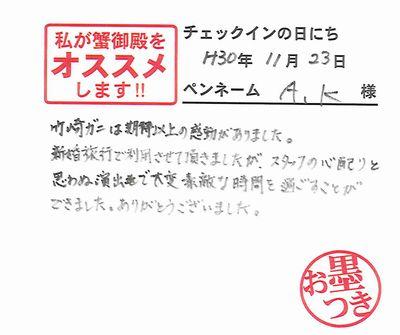 私が蟹御殿を
オススメ
します!!
チェックインの日にち
H30年 11月 23日
ペンネーム A.K 様
竹崎ガニは期待以上の感動がありました。
新婚旅行で利用させて頂きましたが、スタッフの心配りと
思わぬ演出まで大変素敵な時間を過ごすことが
できました。ありがとうございました。
お墨
つき